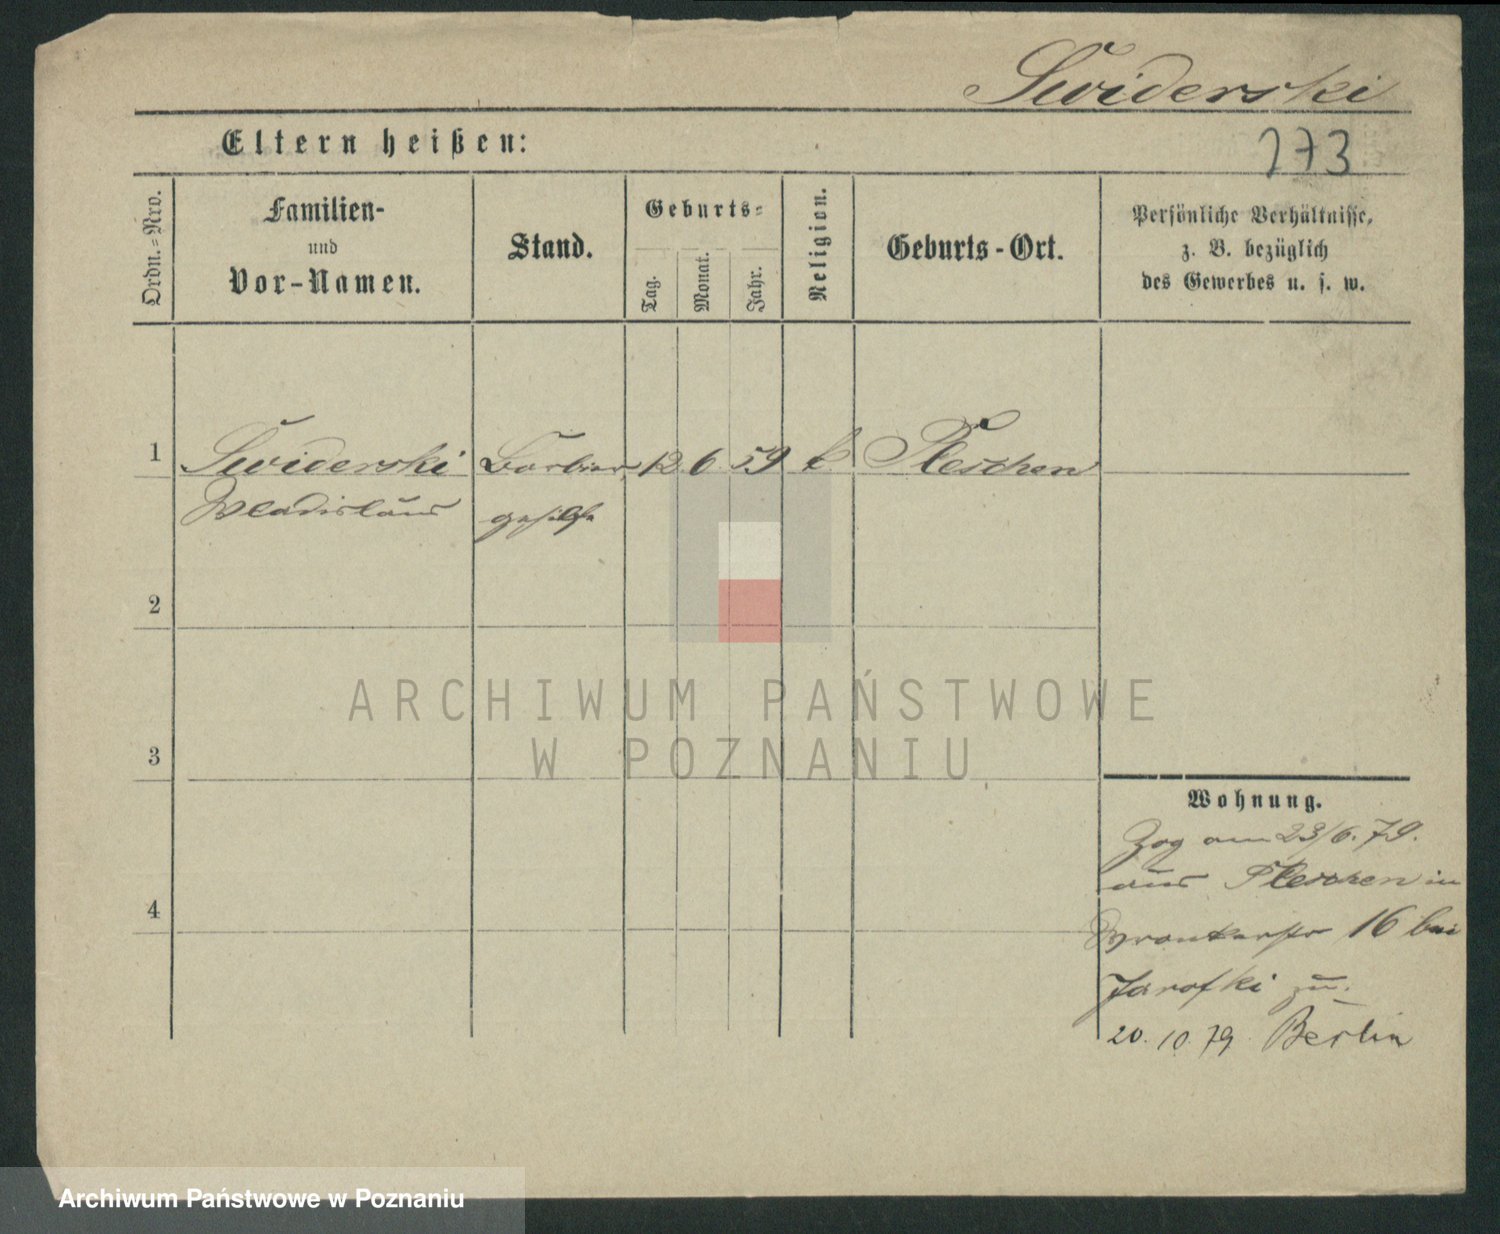 Swiderski
Eltern heißen:
173
Ordn.=Nro.
Familien-
und
Vor-Namen.
Stand.
Geburts=
Tag.
Monat.
Jahr.
Religion.
Geburts-Ort.
Persönliche Verhältnisse,
z. B. bezüglich
des Gewerbes u. s. w.
1
Swiderski Barbier 12 6 59 k Pleschen
Wladislaus gehilfe
2
ARCHIWUM PAŃSTWOWE
W POZNANIU
3
Wohnung.
Zog am 23/6. 79.
aus Pleschen in
4
Wronkerstr 16 bei
Jarofki zu.
20. 10. 79 Berlin
Archiwum Państwowe w Poznaniu